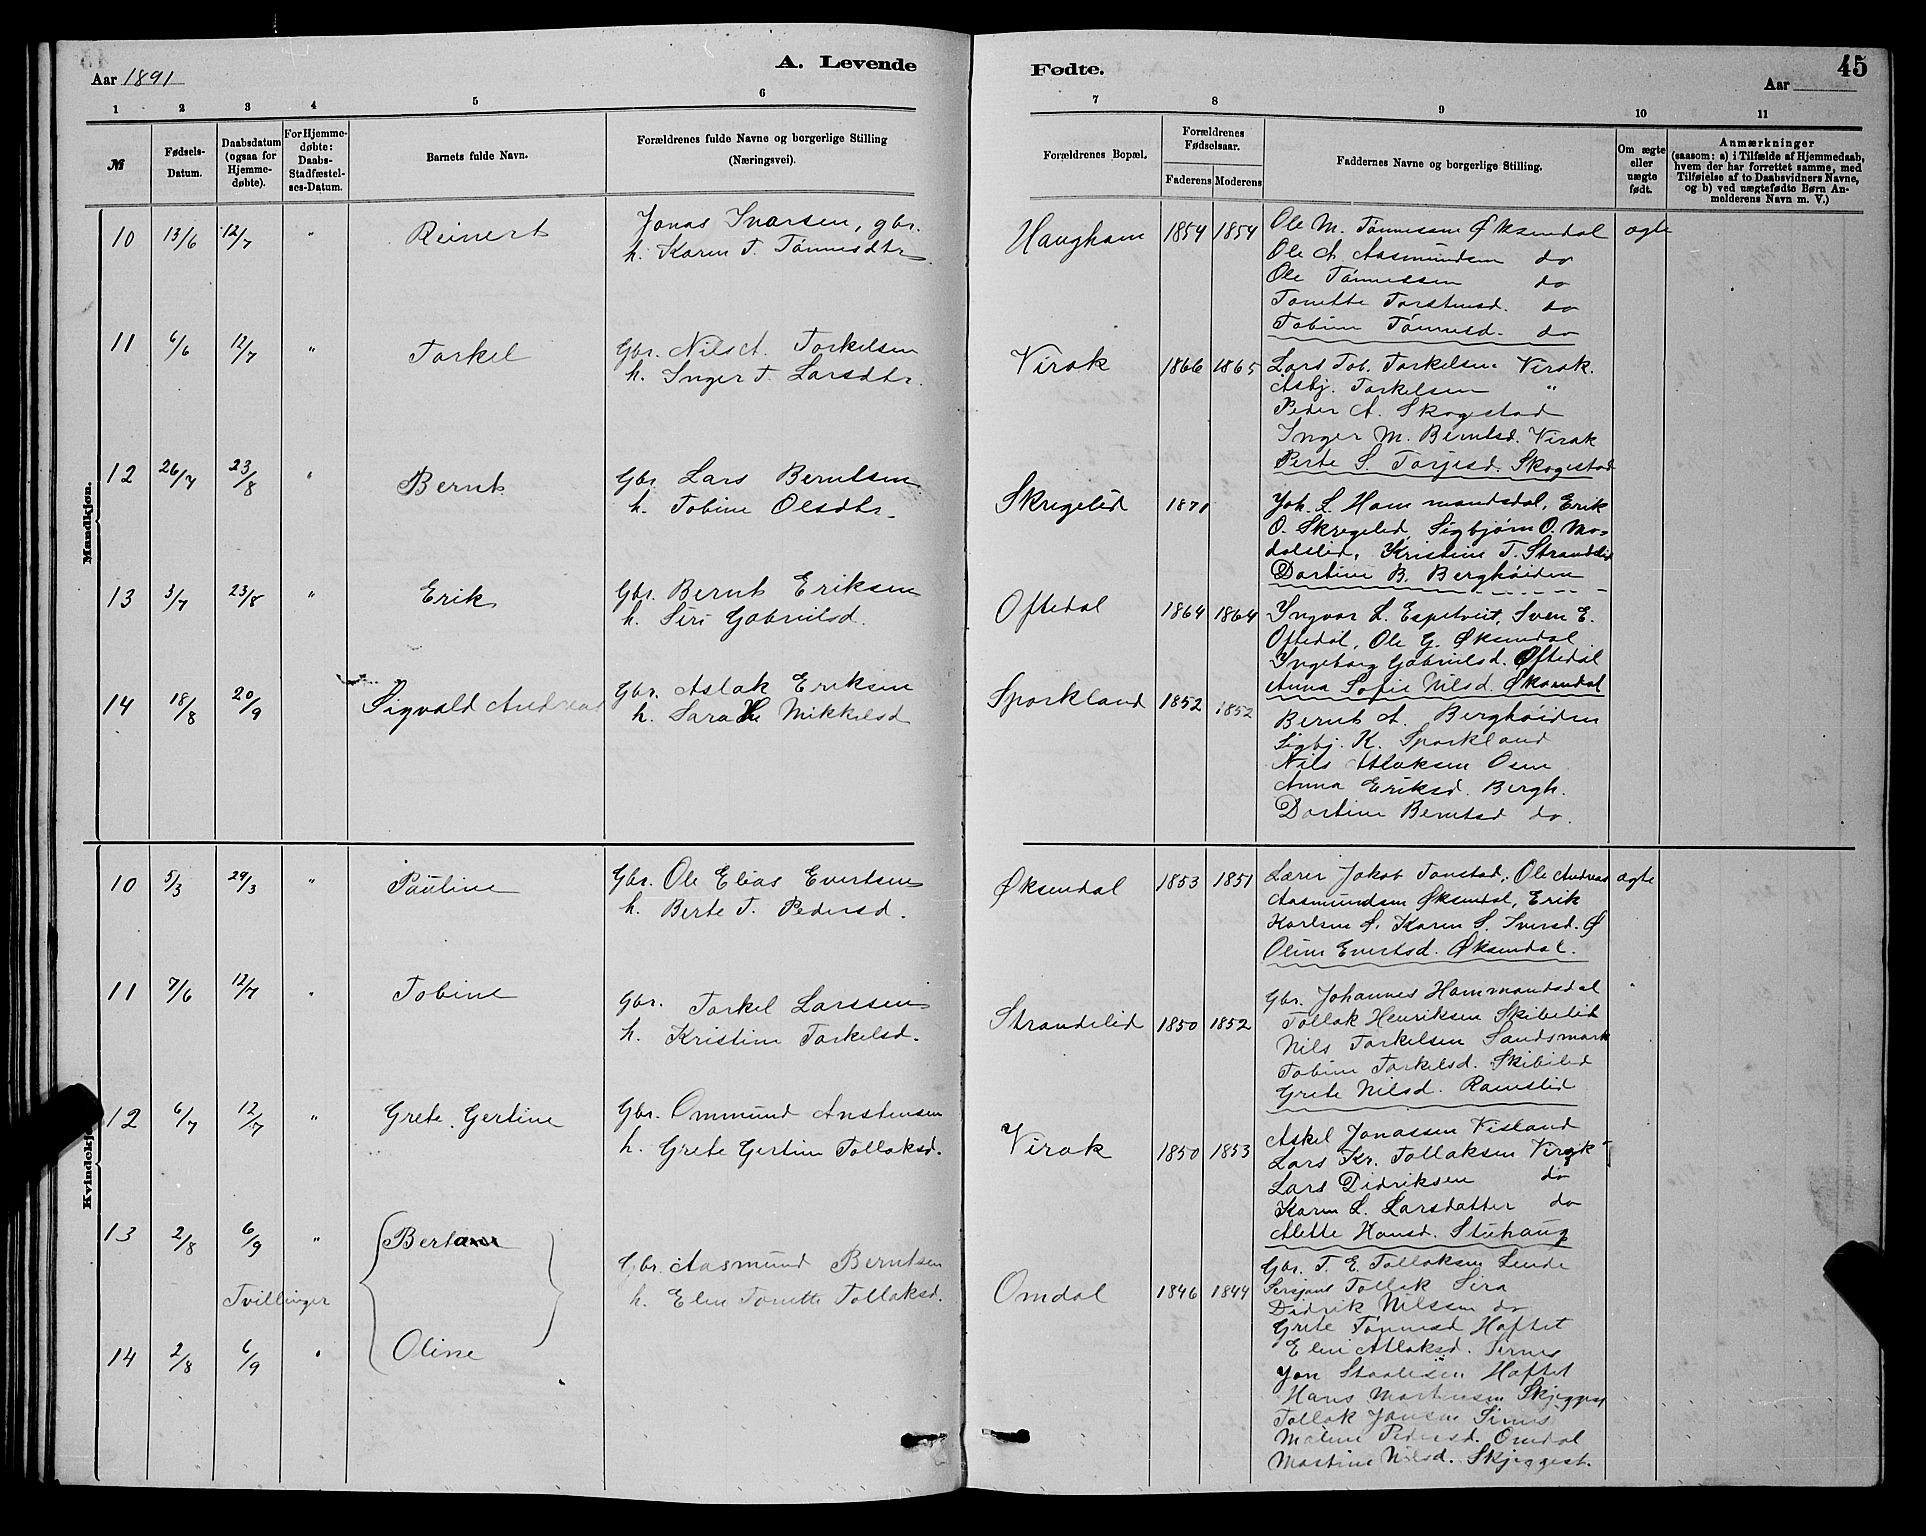 Aar 1891
A. Levende
1 2 3 4 5 6
№
Fødsels-
Datum.
Daabsdatum
(ogsaa for
Hjemme-
døbte).
For Hjemme-
døbte:
Daabs-
Stadfæstel-
ses-Datum.
Barnets fulde Navn.
Forældrenes fulde Navne og borgerlige Stilling
(Næringsvei).
Mandkjøn.
10 13/6 12/7 " Reinert
Jonas Ivarsen, gbr.
h. Karen T. Tønnesdtr.
11 6/6 12/7 " Torkel
Gbr. Nils A. Torkelsen
h. Inger T. Larsdtr.
12 26/7 23/8 " Bernt
Gbr Lars Berntsen
h. Tobine Olsdtr.
13 3/7 23/8 " Erik
Gbr. Bernt Eriksen
h. Siri Gabrielsd.
14 18/8 20/9 Sigvald Andreas
Gbr. Aslak Eriksen
h. Sara He Mikkelsd
Kvindekjøn.
10 5/3 29/3 " Pauline
Gbr. Ole Elias Evertsen
h. Berte T. Pedersd.
11 7/6 12/7 " Tobine
Gbr. Torkel Larssen
h. Kristine Torkelsd.
12 6/7 12/7 " Grete Gertine
Gbr. Ommund Anstensen
h. Grete Gertine Tollaksd.
13 2/8 6/9 "
Gbr. Aasmund Berntsen
Tvillinger
h. Elen Tonette Tollaksd.
14 2/8 6/9 " Oline
Fødte.
Aar
45
7 8 9 10 11
Forældrenes Bopæl.
Forældrenes
Fødselsaar.
Faderens Moderens
Faddernes Navne og borgerlige Stilling.
Om ægte
eller
uægte
født.
Anmærkninger
(saasom: a) i Tilfælde af Hjemmedaab,
hvem der har forrettet samme, med
Tilføielse af to Daabsvidners Navne,
og b) ved uægtefødte Børn An-
melderens Navn m. V.)
Haugham 1854 1854 Ole M. Tønnesen Øksendal ægte
Ole A. Aasmundsen do
Ole Tønnessen do
Tonette Torstensd. do
Tobine Tønnesd. do
Virak 1866 1865 Lars Tob. Torkelsen Virak.
Asbj. Torkelsen "
Peder A. Skogestad
Inger M. Berntsd. Virak
Berte S. Torjesd. Skogestad
Skregelid 1871 Joh. L. Hammandsdal, Erik
O. Skregelid, Sigbjørn O. Mo-
dalslid, Kristine T. Strandelid
Dortine B. Berghøiden
Oftedal 1864 1864 Yngvar L. Espetveit, Sven E.
Oftedal, Ole G. Øksendal
Yngeborg Gabrielsd. Oftedal
Anna Sofie Nilsd. Øksendal
Sporkland 1852 1852
Bernt A. Berghøiden
Sigbj. K. Sporkland
Nils Atlaksen Osen
Anna Eriksd. Bergh.
Dortine Berntsd do.
Øksendal 1853 1851 Lærer Jakob Tonstad, Ole Andreas ægte
Aasmundsen Øksendal, Erik
Karlsen S. Karen S. Iversd. Ø
Oline Evertsd. Øksendal.
Gbr. Johannes Hammandsdal "
Strandelid 1850 1852 Tollak Henriksen Skibelid
Nils Torkelsen Sandsmark
Tobine Torkelsd. Skibelid
Grete Nilsd. Ramslid
Askel Jonassen Visland
Virak 1850 1853 Lars Kr. Tollaksen Virak
Lars Didriksen do
Karen L. Larsdatter do
Alette Hansd. Stuhaug
Gbr. T. E. Tollaksen Lende
Omdal 1846 1844 Sersjant Tollak Sira
Didrik Nilssen do
Grete Tønnesd Haftet
Elen Atlaksd. Sirnes
Jon Staalesen Haftet
Hans Mortensen Skjeggest
Tollak Jonsen Sirnes
Malene Pedersd. Omdal
Martine Nilsd. Skjeggest.